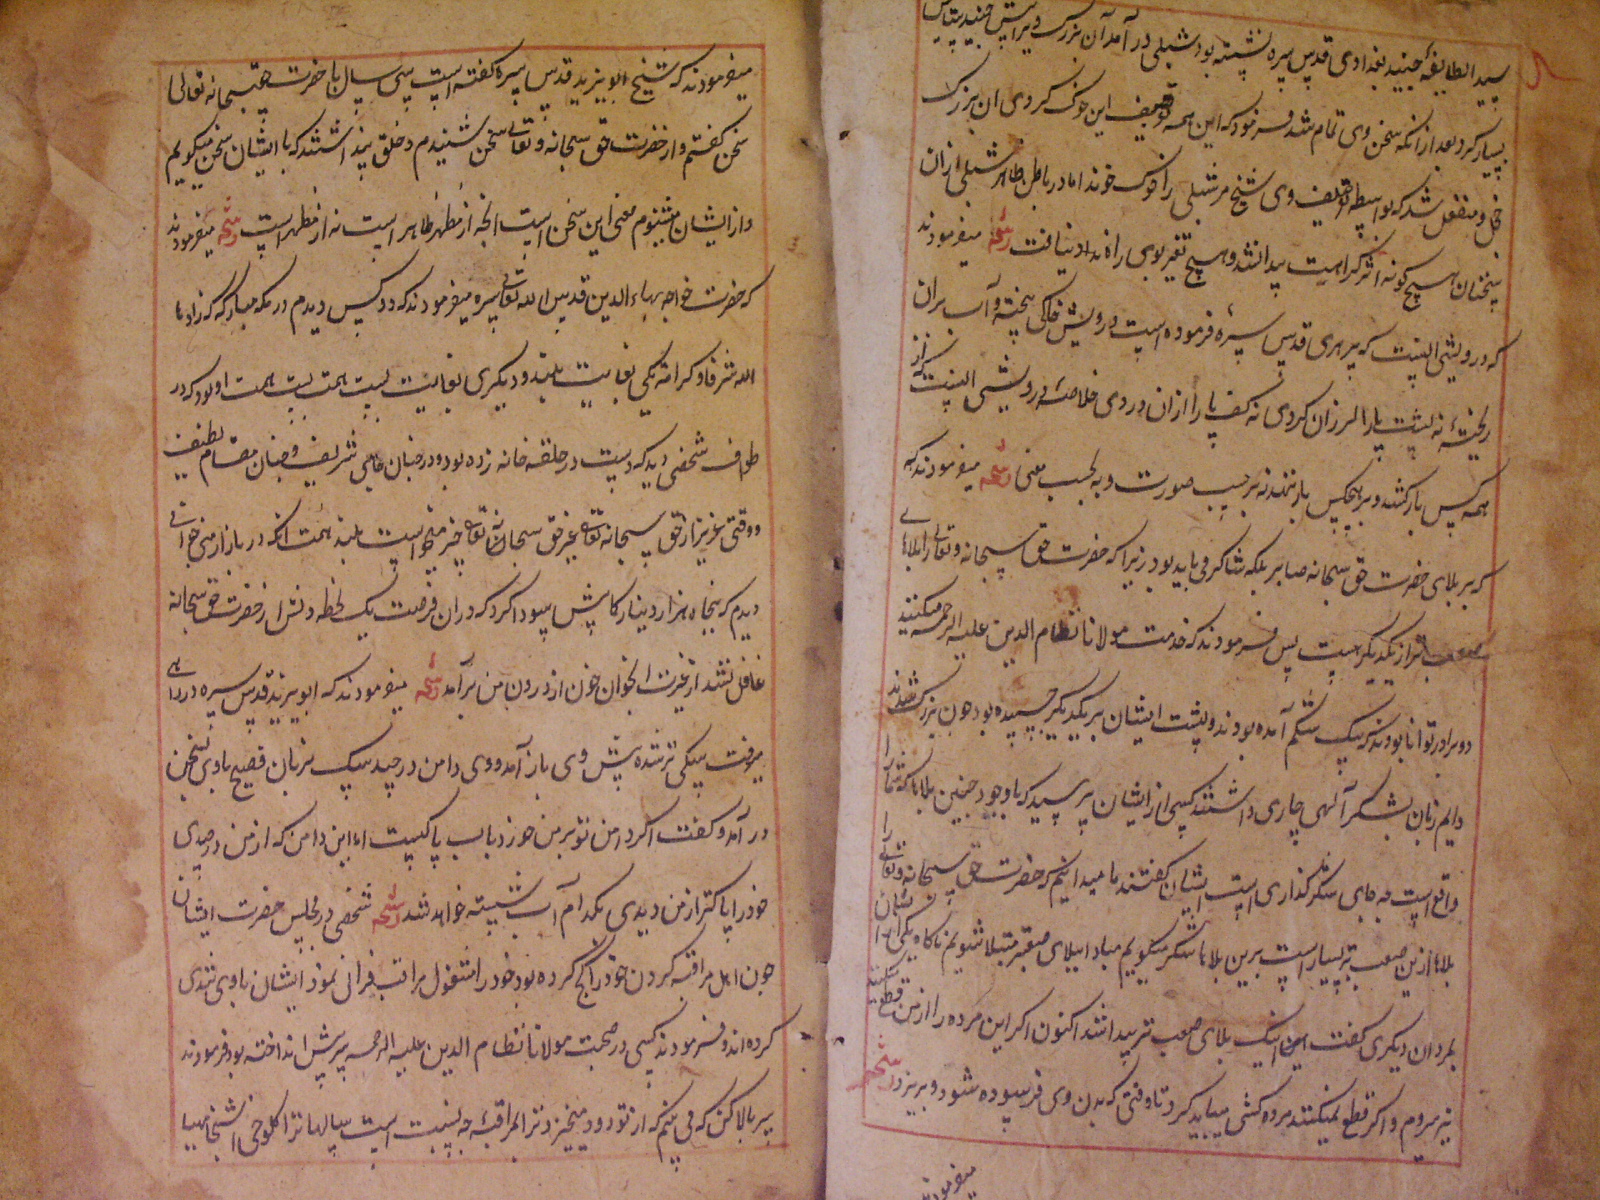 سید الطایفه جنید بغدادی قدس سره نشسته بود شبلی در آمد آن بزرگ ویرا پیش جنید ستایش
بسیار کرد بعد از انکه سخن وی تمام شد فرمود که این همه توصیف این خوک کردی ان بزرگ
خجل و منفعل شد که بواسطه توصیف وی شیخ مر شبلی را خوک خواند اما در باطن و ظاهر شبلی ازان
سخنان هیچ گونه اثر کراهیت پیدا نشد و هیچ تغیر بوی راه نداد و نیافت رشحه میفرمودند
که درویشی اینست که پیر هری قدس سره فرموده است درویش خاکی بیخته و آب بران
ریخته نه پشت پا را ازان کردی نه کف پا را ازان دردی خلاصه درویشی اینست که از
همه کس بار کشد و بر هیچکس بار ننهد نه بر حسب صورت و نه بحسب معنی رشحه میفرمودند که
که بر بلای حضرت حق سبحانه صابر بلکه شاکر می باید بود زیرا که حضرت حق سبحانه و تعالی را بلاهای
صعب تر از یکدیگر هست پس فرمودند که خدمت مولانا نظام الدین علیه الرحمه میگفتند
دو برادر توامان بودند که بیک شکم آمده بودند و پشت ایشان بر یکدیگر چسپیده بود چون بزرگ شدند
دایم زبان بشکر آلهی جاری داشتند کسی از ایشان پرسید که با وجود چنین بلا که شما را
واقع است چه جای شکر گذاری است ایشان گفتند ما میدانیم که حضرت حق سبحانه و تعالی را
بلاها ازین صعب تر بسیار است برین بلا ما شکر میگویم مبادا ببلای صعبتر مبتلا شویم ناگاه یکی از ایشان
بمرد ان دیگری گفت اینک بلای صعب تر پیدا شد اکنون اگر این مرده را از من قطع میکنند
نیز میروم و اگر قطع نمیکنند مرده کشی میباید کرد تا وقتی که بدن وی فرسوده شود و بریزد رشحه
میفرمودند
میفرمودند که شیخ ابو یزید قدس سره گفته است سی سال با حضرت حق سبحانه تعالی
سخن گفتم و از حضرت حق سبحانه و تعالی سخن شنیدم و خلق پنداشتند که با ایشان سخن میگویم
و از ایشان میشنوم معنی این سخن است انچه از مظهر ظاهر است نه از مظهر است رشحه میفرمودند
که حضرت خواجه بهاء الدین قدس الله تعالی سره میفرمودند که دو کس دیدم در مکه مبارکه که زادها
الله شرفا و کرامة یکی بغایت بلند و دیگری بغایت پست همت پست همت او بود که در
طواف شخصی دید که دست در حلقه خانه زده بود و در چنان جای شریف و چنان مقام لطیف
و وقتی عزیز از حق سبحانه تعالی غیر حق سبحانه تعالی چیز میخواست بلند همت انکه در بازار منی جوانی
دیدم که پنجاه هزار دینار کمابیش سودا کرد که دران فرصت یک لحظه دلش از حضرت حق سبحانه
غافل نشد از غیرت انجوان خون از درون من برآمد رشحه میفرمودند که ابو یزید قدس سره در راهی
میرفت سگی تر شده پیش وی باز آمد و وی دامن در چید سگ بزبان فصیح باوی بسخن
در آمد و گفت اگر دامن تو بر من خوردی بآب پاکیست اما این دامن که از من در چیدی
خود را پاکتر از من دیدی بکدام آب شسته خواهد شد رشحه شخصی در مجلس حضرت ایشان
چون اهل مراقبه گردن خود را کج کرده بود خود را مشغول مراقب فرا می نمود ایشان باوی تندی
کرده اند و فرمودند کسی در صحبت مولانا نظام الدین علیه الرحمه سر پیش انداخته بود فرمودند
سر بالا کن که می بینم که از تو دود میخیزد ترا بمراقبه چه نسبت است سالها ترا کلوخ استنجا مهیا